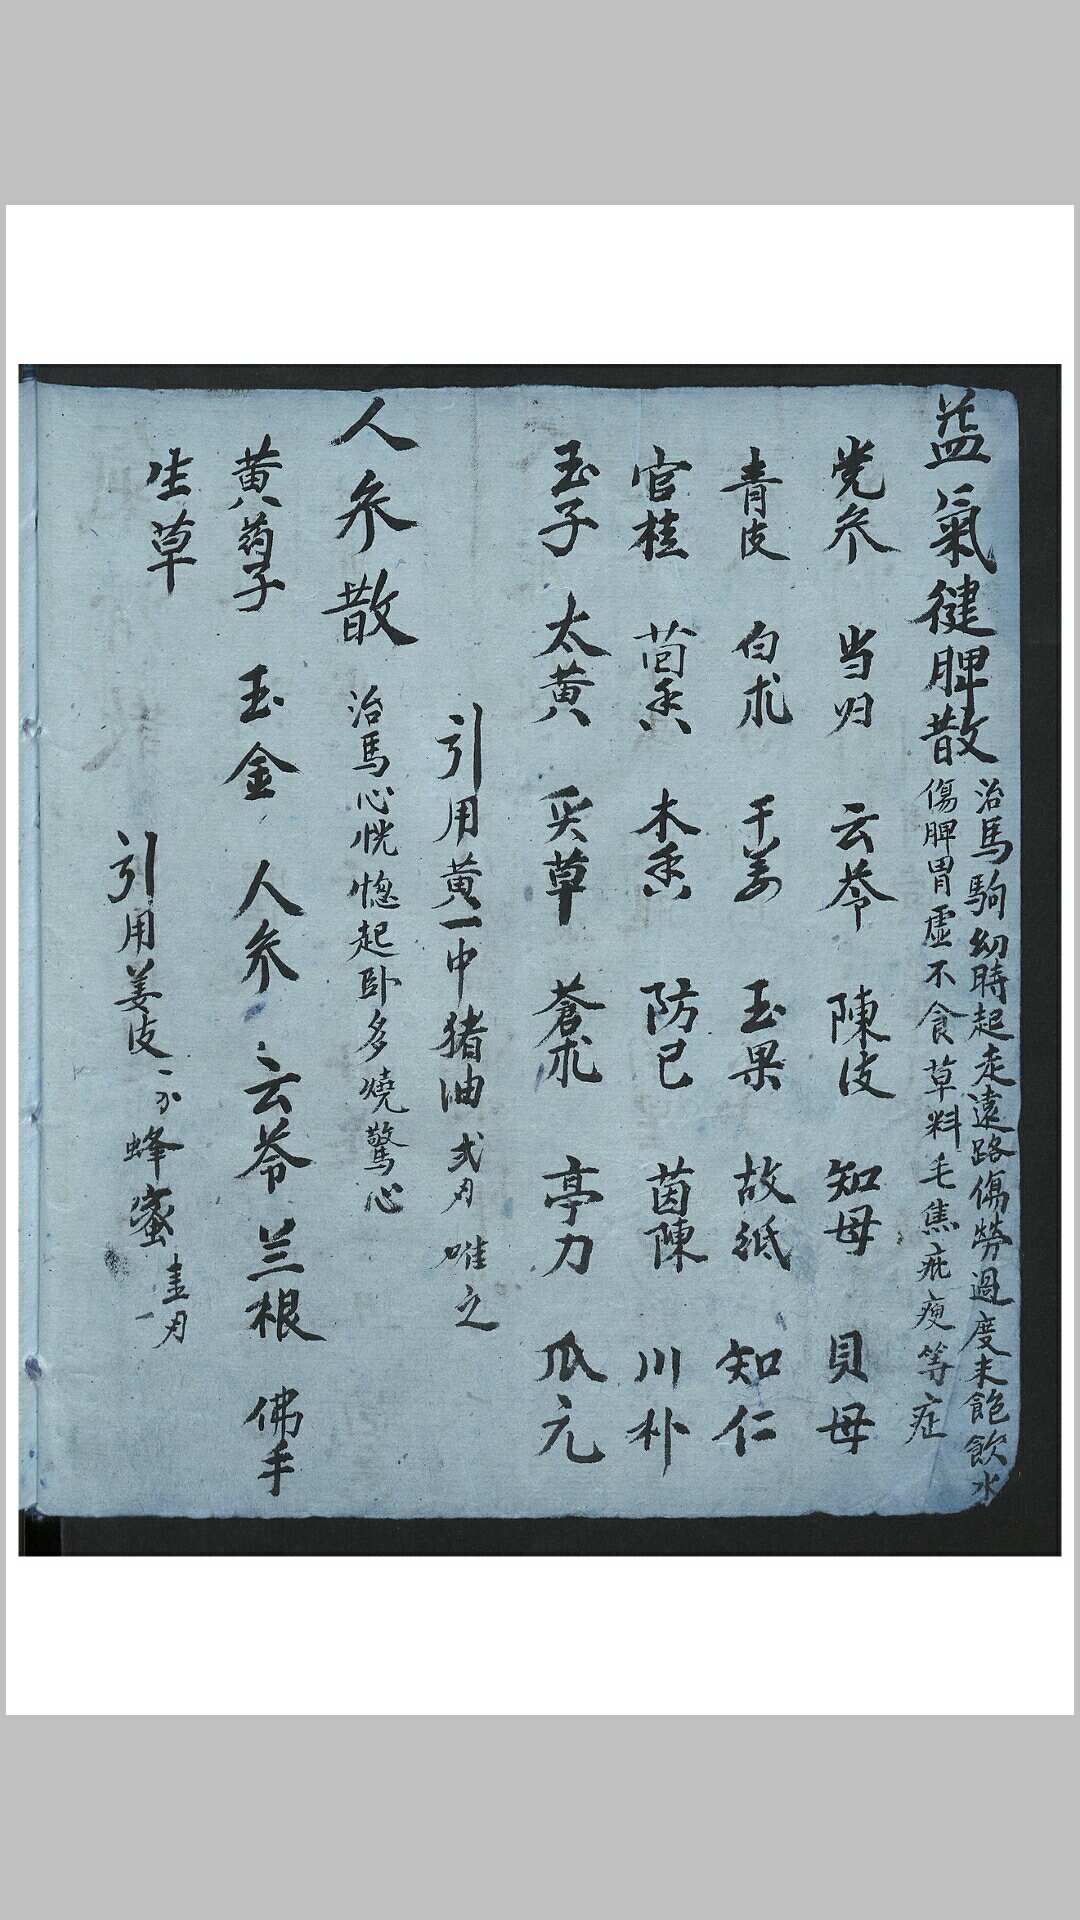 益氣健脾散 治馬駒幼時起走遠路傷勞過度未飽飲水
傷脾胃虛不食草料毛焦疵瘦等症
党参 当归 云苓 陳皮 知母 貝母
青皮 白朮 干姜 玉果 故纸 知仁
官桂 茴香 木香 防已 茵陳 川朴
玉子 太黄 炙草 蒼朮 亭力 瓜元
引用黄一中猪油 弍 唯之
人参散 治馬心恍惚起卧多燒驚心
黄药子 玉金 人参 云苓 兰根 佛手
生草
引用姜皮 蜂蜜